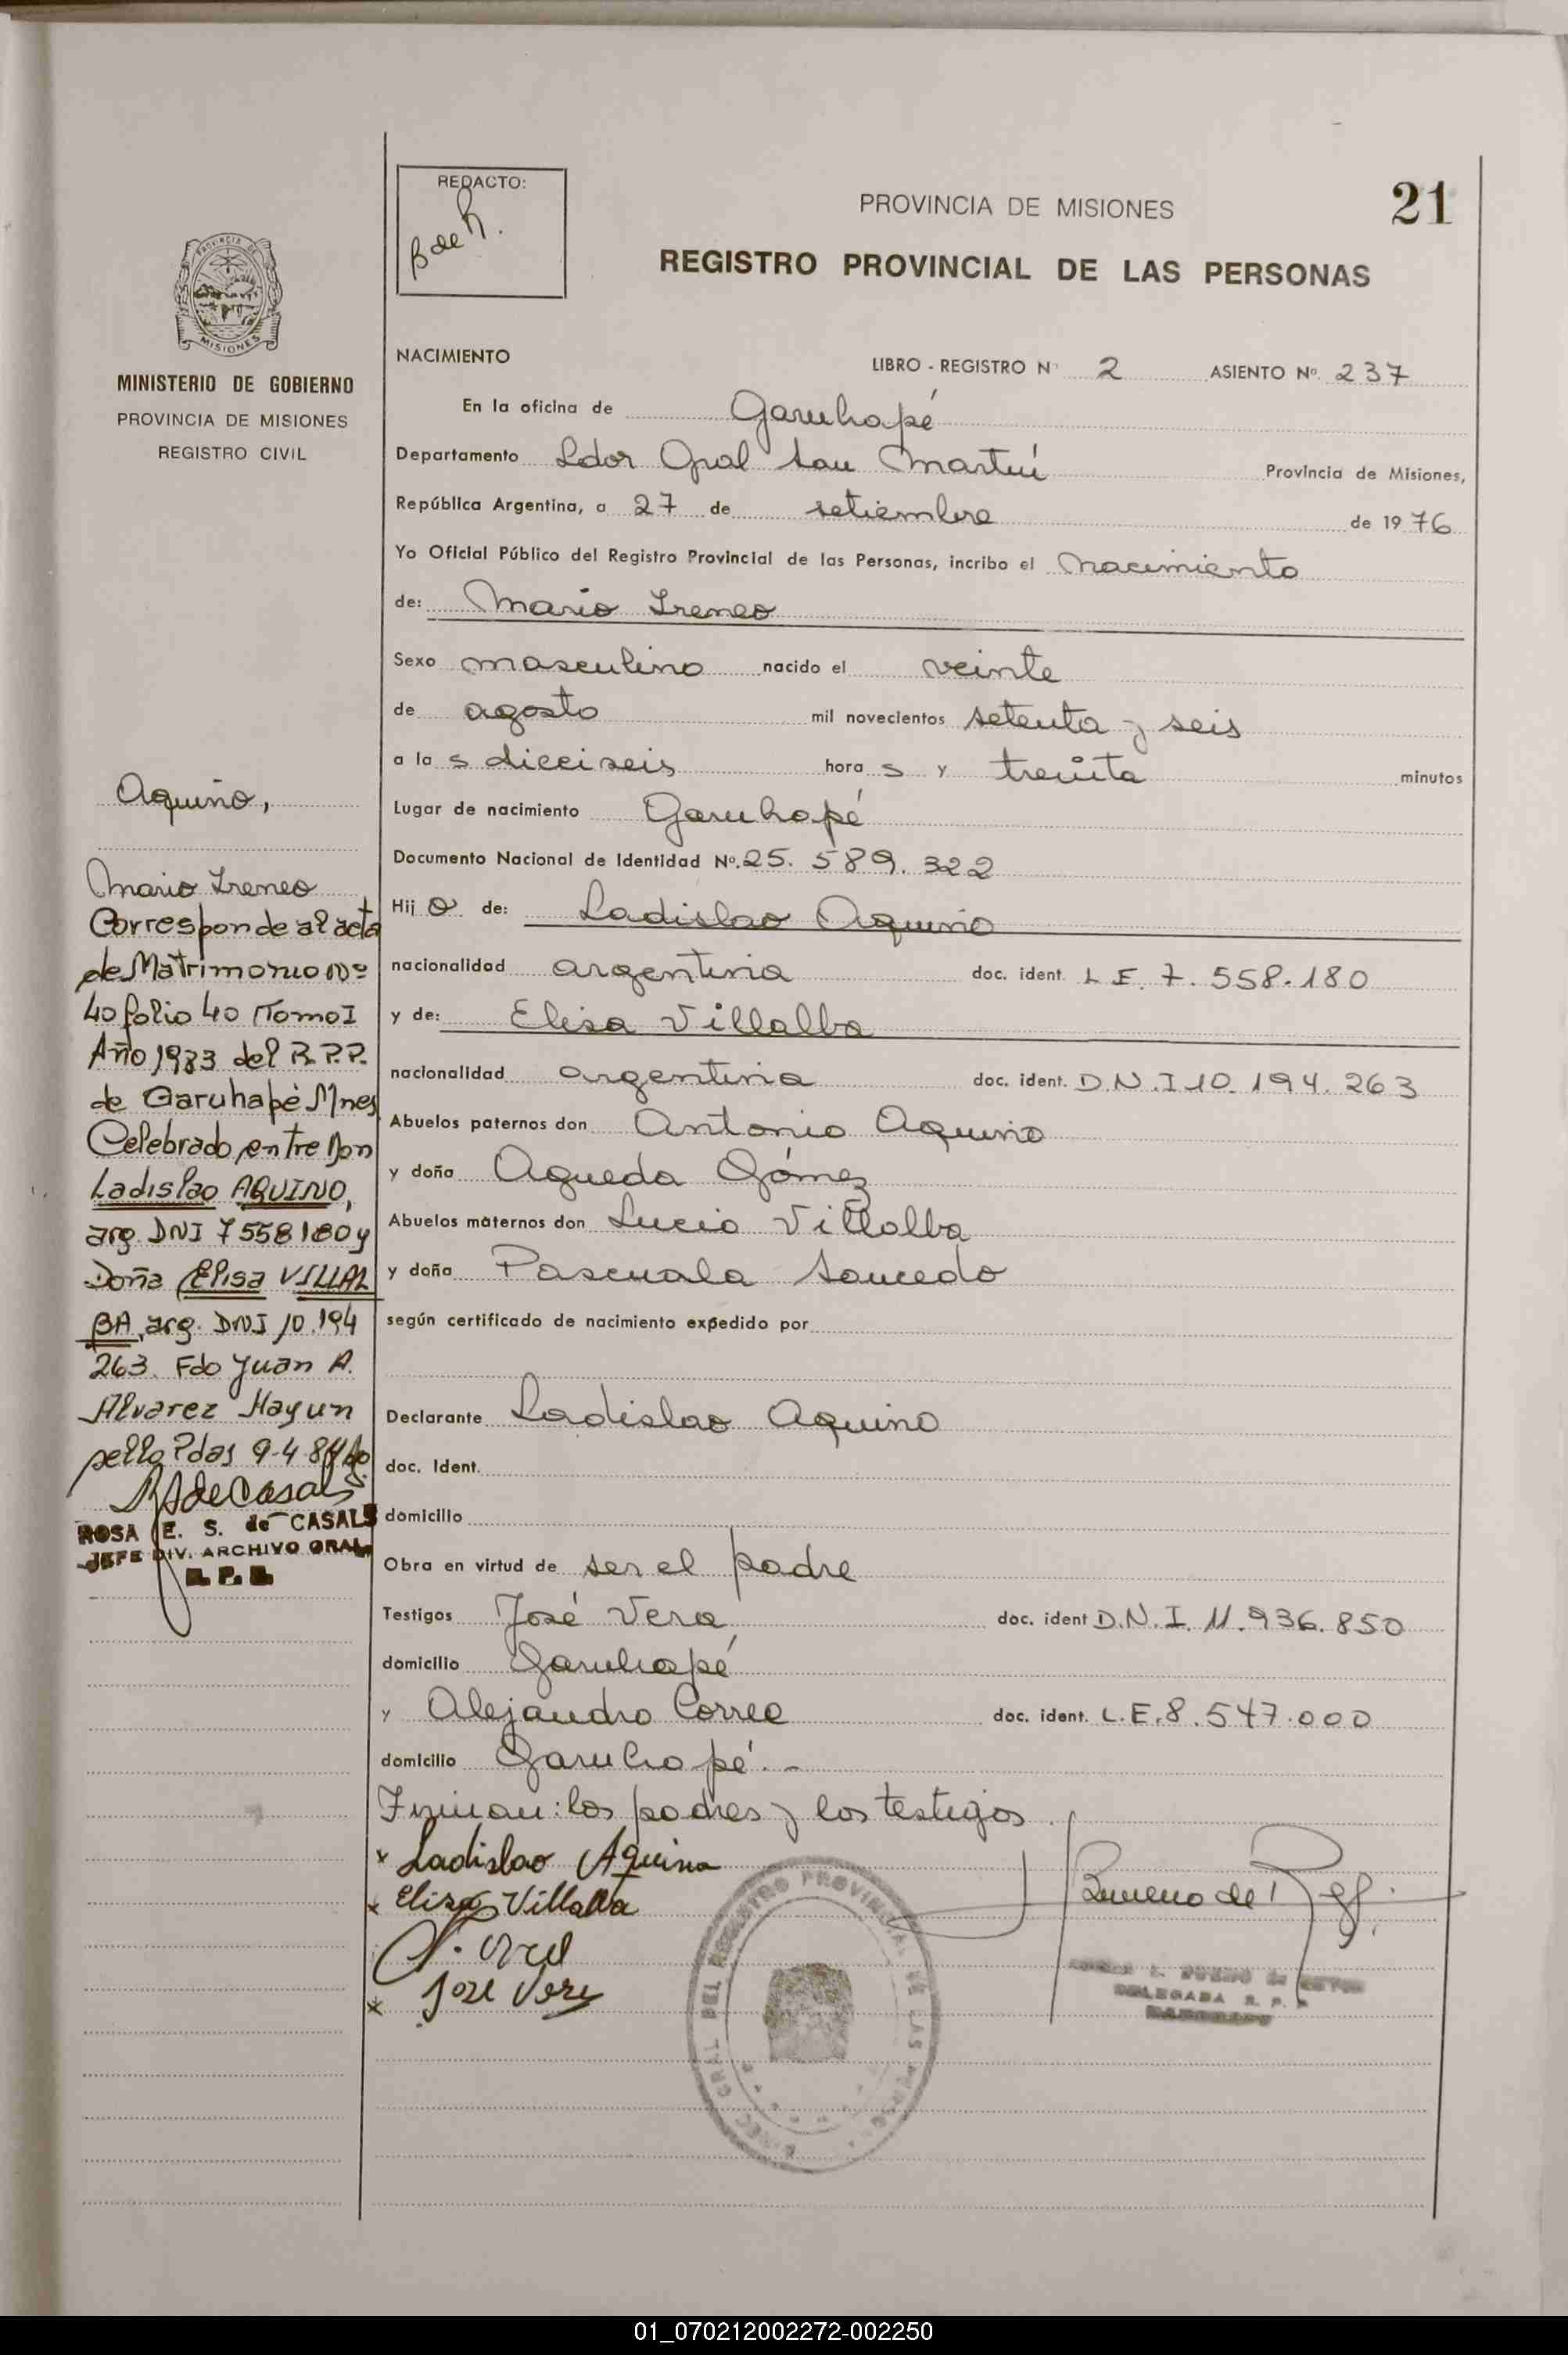 REDACTO:
B de R.
PROVINCIA DE MISIONES
21
REGISTRO PROVINCIAL DE LAS PERSONAS
MISIONES
MINISTERIO DE GOBIERNO
PROVINCIA DE MISIONES
REGISTRO CIVIL
NACIMIENTO
LIBRO - REGISTRO Nº 2 ASIENTO Nº. 237
En la oficina de Garuhapé
Departamento Ldor Gral San Martín Provincia de Misiones,
República Argentina, a 27 de setiembre de 1976
Yo Oficial Público del Registro Provincial de las Personas, incribo el Nacimiento
de: Mario Ireneo
Sexo masculino nacido el veinte
de agosto mil novecientos setenta y seis
a la s dieciseis hora s y treinta minutos
Lugar de nacimiento Garuhapé
Documento Nacional de Identidad Nº. 25. 589. 322
Hij o de: Ladislao Aquino
nacionalidad argentina doc. ident. L.E. 7. 558.180
y de: Elisa Villalba
nacionalidad argentina doc. ident. D.N.I 10. 194. 263
Abuelos paternos don Antonio Aquino
y doña Agueda Gómez
Abuelos maternos don Lucio Villalba
y doña Pascuala Saucedo
según certificado de nacimiento expedido por
Declarante Ladislao Aquino
doc. Ident.
domicilio
Obra en virtud de ser el padre
Testigos José Vera doc. ident D.N.I. 11.936.850
domicilio Garuhapé
y Alejandro Correa doc. ident. L.E. 8.547.000
domicilio Garuhapé.-
Firman: los padres y los testigos.
x Ladislao Aquino
x Elisa Villalba
x José Vera
Bueno de
DELEGADA R. P. P.
DEL REGISTRO PROVINCIAL DE LAS PERSONAS
Aquino,
Mario Ireneo
Corresponde al acta
de Matrimonio Nº
40 folio 40 Tomo I
Año 1983 del R.P.P.
de Garuhapé Mnes
Celebrado entre Don
Ladislao AQUINO,
arg. DNI 7558180 y
Doña Elisa VILLAL
BA, arg. DNI 10.194
263. Fdo Juan A.
Alvarez Hay un
sello Pdas 9-4-84
ROSA E. S. de CASALS
JEFE DIV. ARCHIVO GRAL.
R. P. P.
01_070212002272-002250